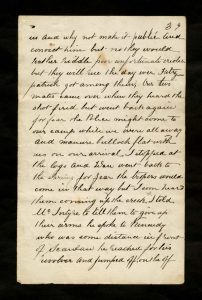 us and why not make it public and
convict him but no they would
rather riddle poor unfortunate creoles
but they will rue the day ever Fitz
patrick got among them, Our two
mates came over when they heard the
shot fired but went back again
for fear the Police might come to
our camp while we were all away
and manure bullock flat with
us on our arrival I stopped at
the logs and Dan went back to
the spring for fear the troopers would
come in that way but I soon heard
them coming up the creek I told
McIntyre to tell them to give up
their arms he spoke to Kennedy
who was some distance in front
of Scanlan he reached for his
revolver and jumped off, on the off